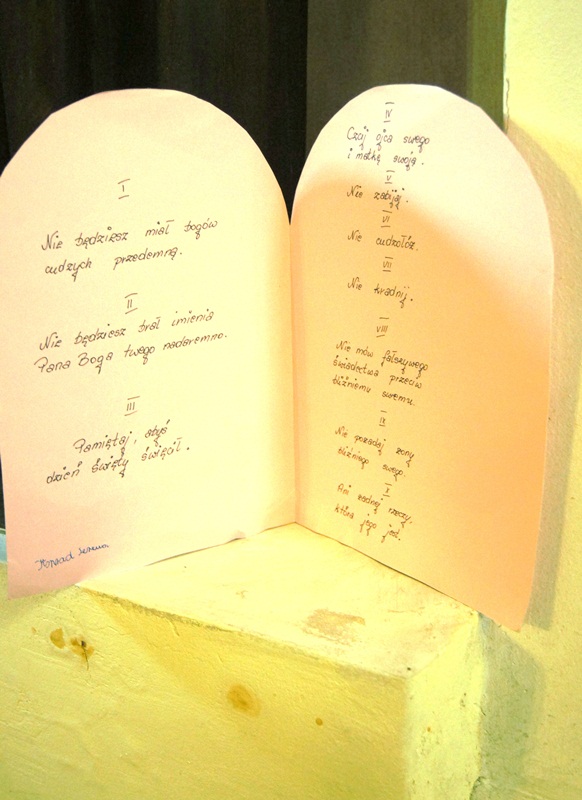 I
Nie będziesz miał bogów
cudzych przedemną.
II
Nie będziesz brał imienia
Pana Boga twego nadaremno.
III
Pamiętaj, abyś
dzień święty święcił.
Konrad
IV
Czcij ojca swego
i matkę swoją.
V
Nie zabijaj.
VI
Nie cudzołóż.
VII
Nie kradnij.
VIII
Nie mów fałszywego
świadectwa przeciw
bliźniemu swemu.
IX
Nie pożądaj żony
bliźniego swego.
X
Ani żadnej rzeczy,
która jego jest.